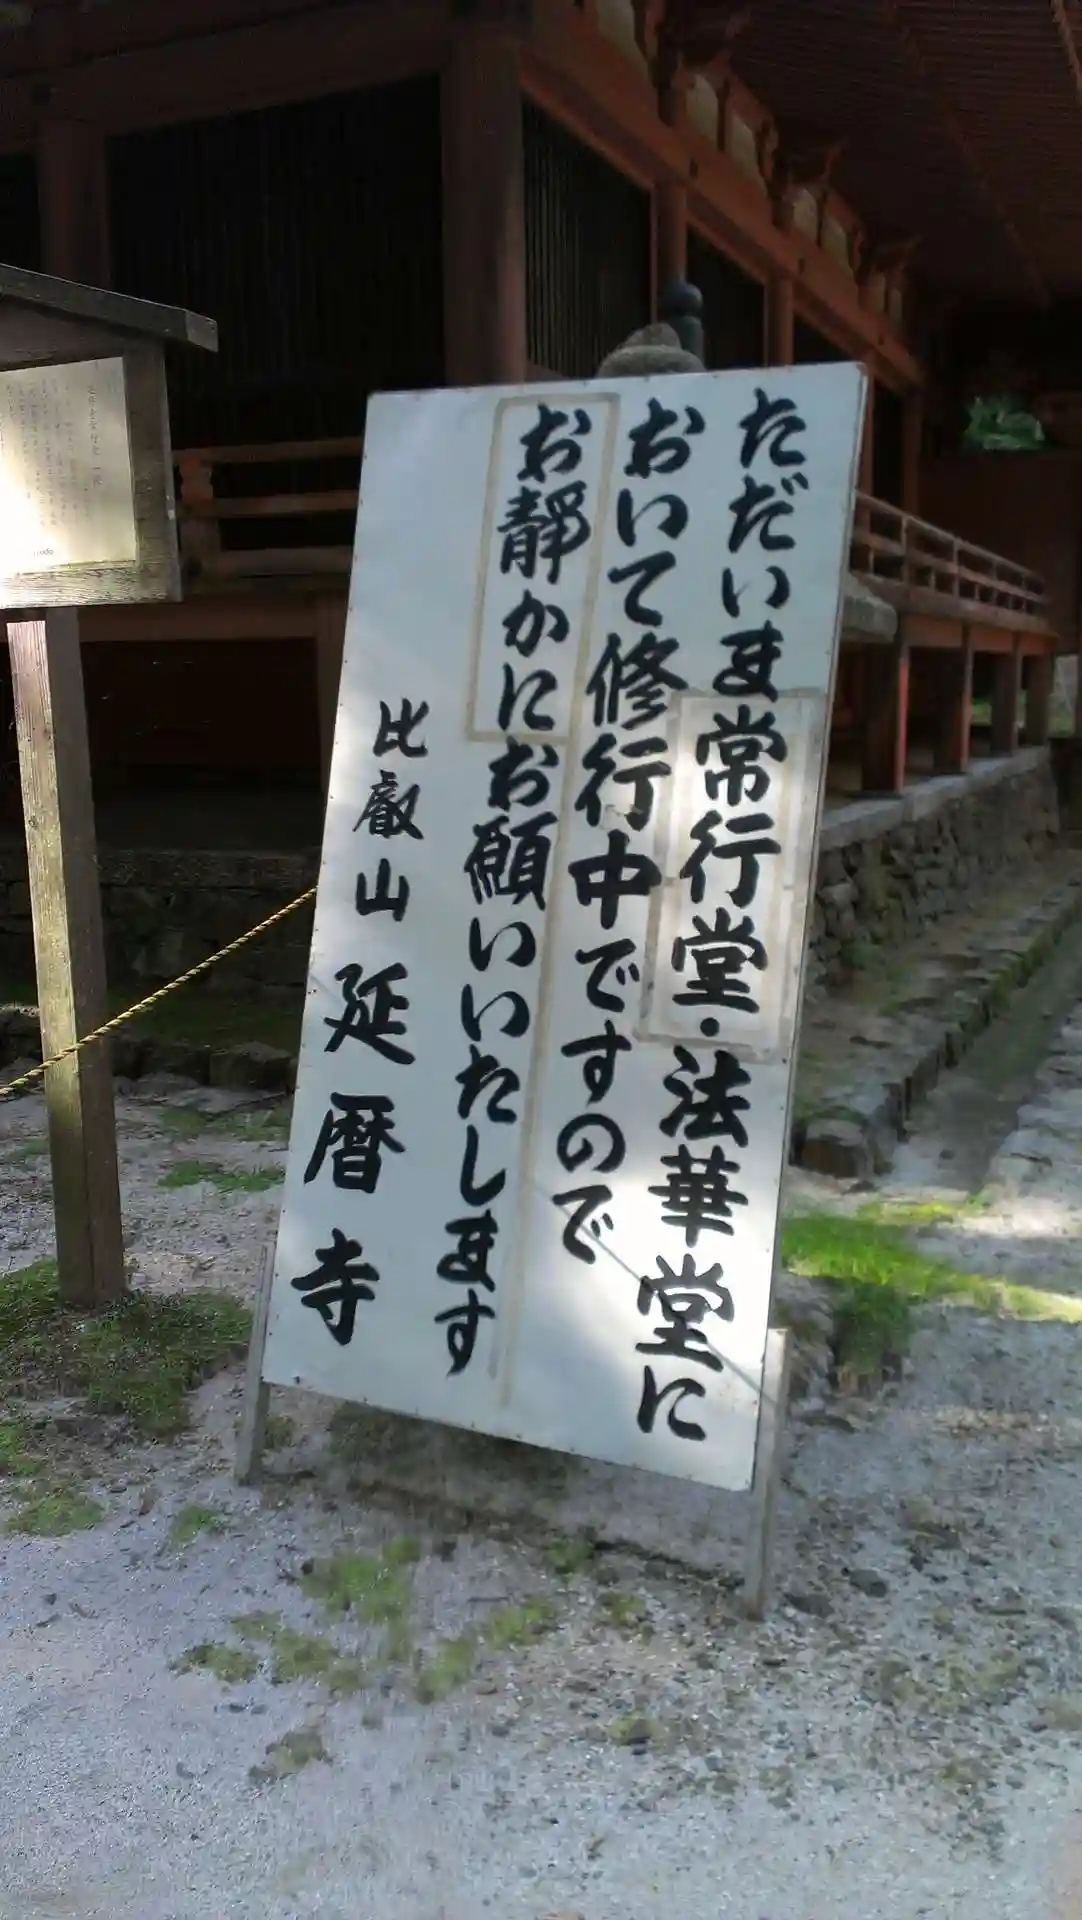 ただいま常行堂・法華堂に
おいて修行中ですので
お静かにお願いいたします
比叡山 延暦寺